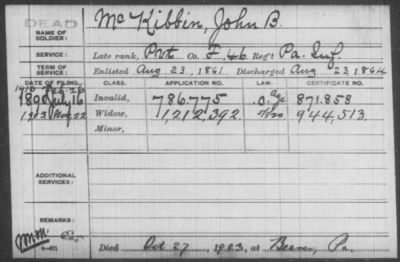 DEAD
NAME OF SOLDIER: McKibbin, John B.
SERVICE: Late rank, Pvt Co. F, 46 Reg't Pa. Inf.
TERM OF SERVICE: Enlisted Aug 23, 1861 Discharged Aug 23 1864
DATE OF FILING. CLASS. APPLICATION NO. LAW. CERTIFICATE NO.
1890 July 16 Invalid, 786.775 871.858
1923 Nov 22 Widow, 1,212,392 944,513.
Minor,
ADDITIONAL SERVICES:
REMARKS:
Died Oct 27, 1923, at Beaver, Pa.